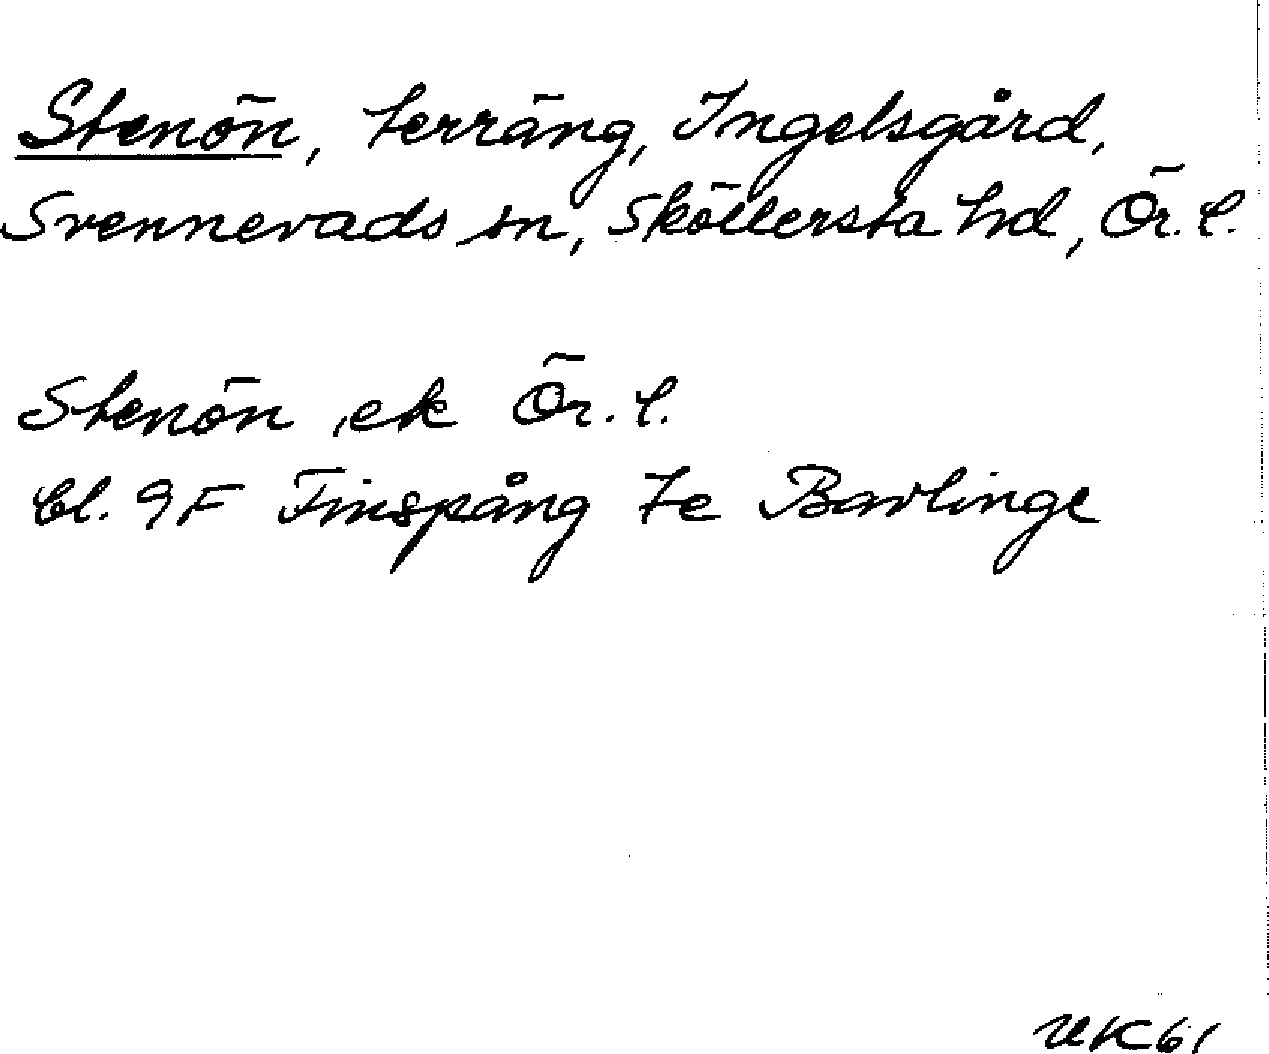 Stenön, terräng, Ingelsgård,
Svennevads sn, Sköllersta hd, Ör. l.
Stenön, ek Ör. l.
bl. 9F Finspång 7e Bavlinge
UK61